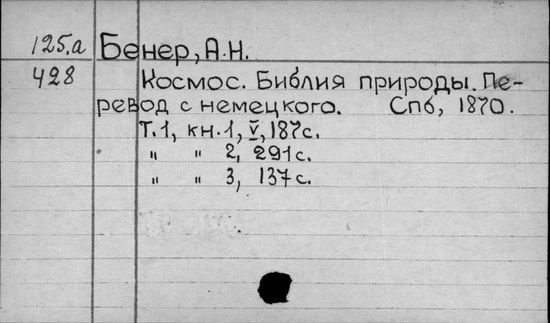 125.а Бенер, А.Н.
428 Космос. Библия природы. Пе-
ревод с немецкого. Спб, 1870.
Т.1, кн.1, V, 187с.
" " 2, 291с.
" " 3, 137с.